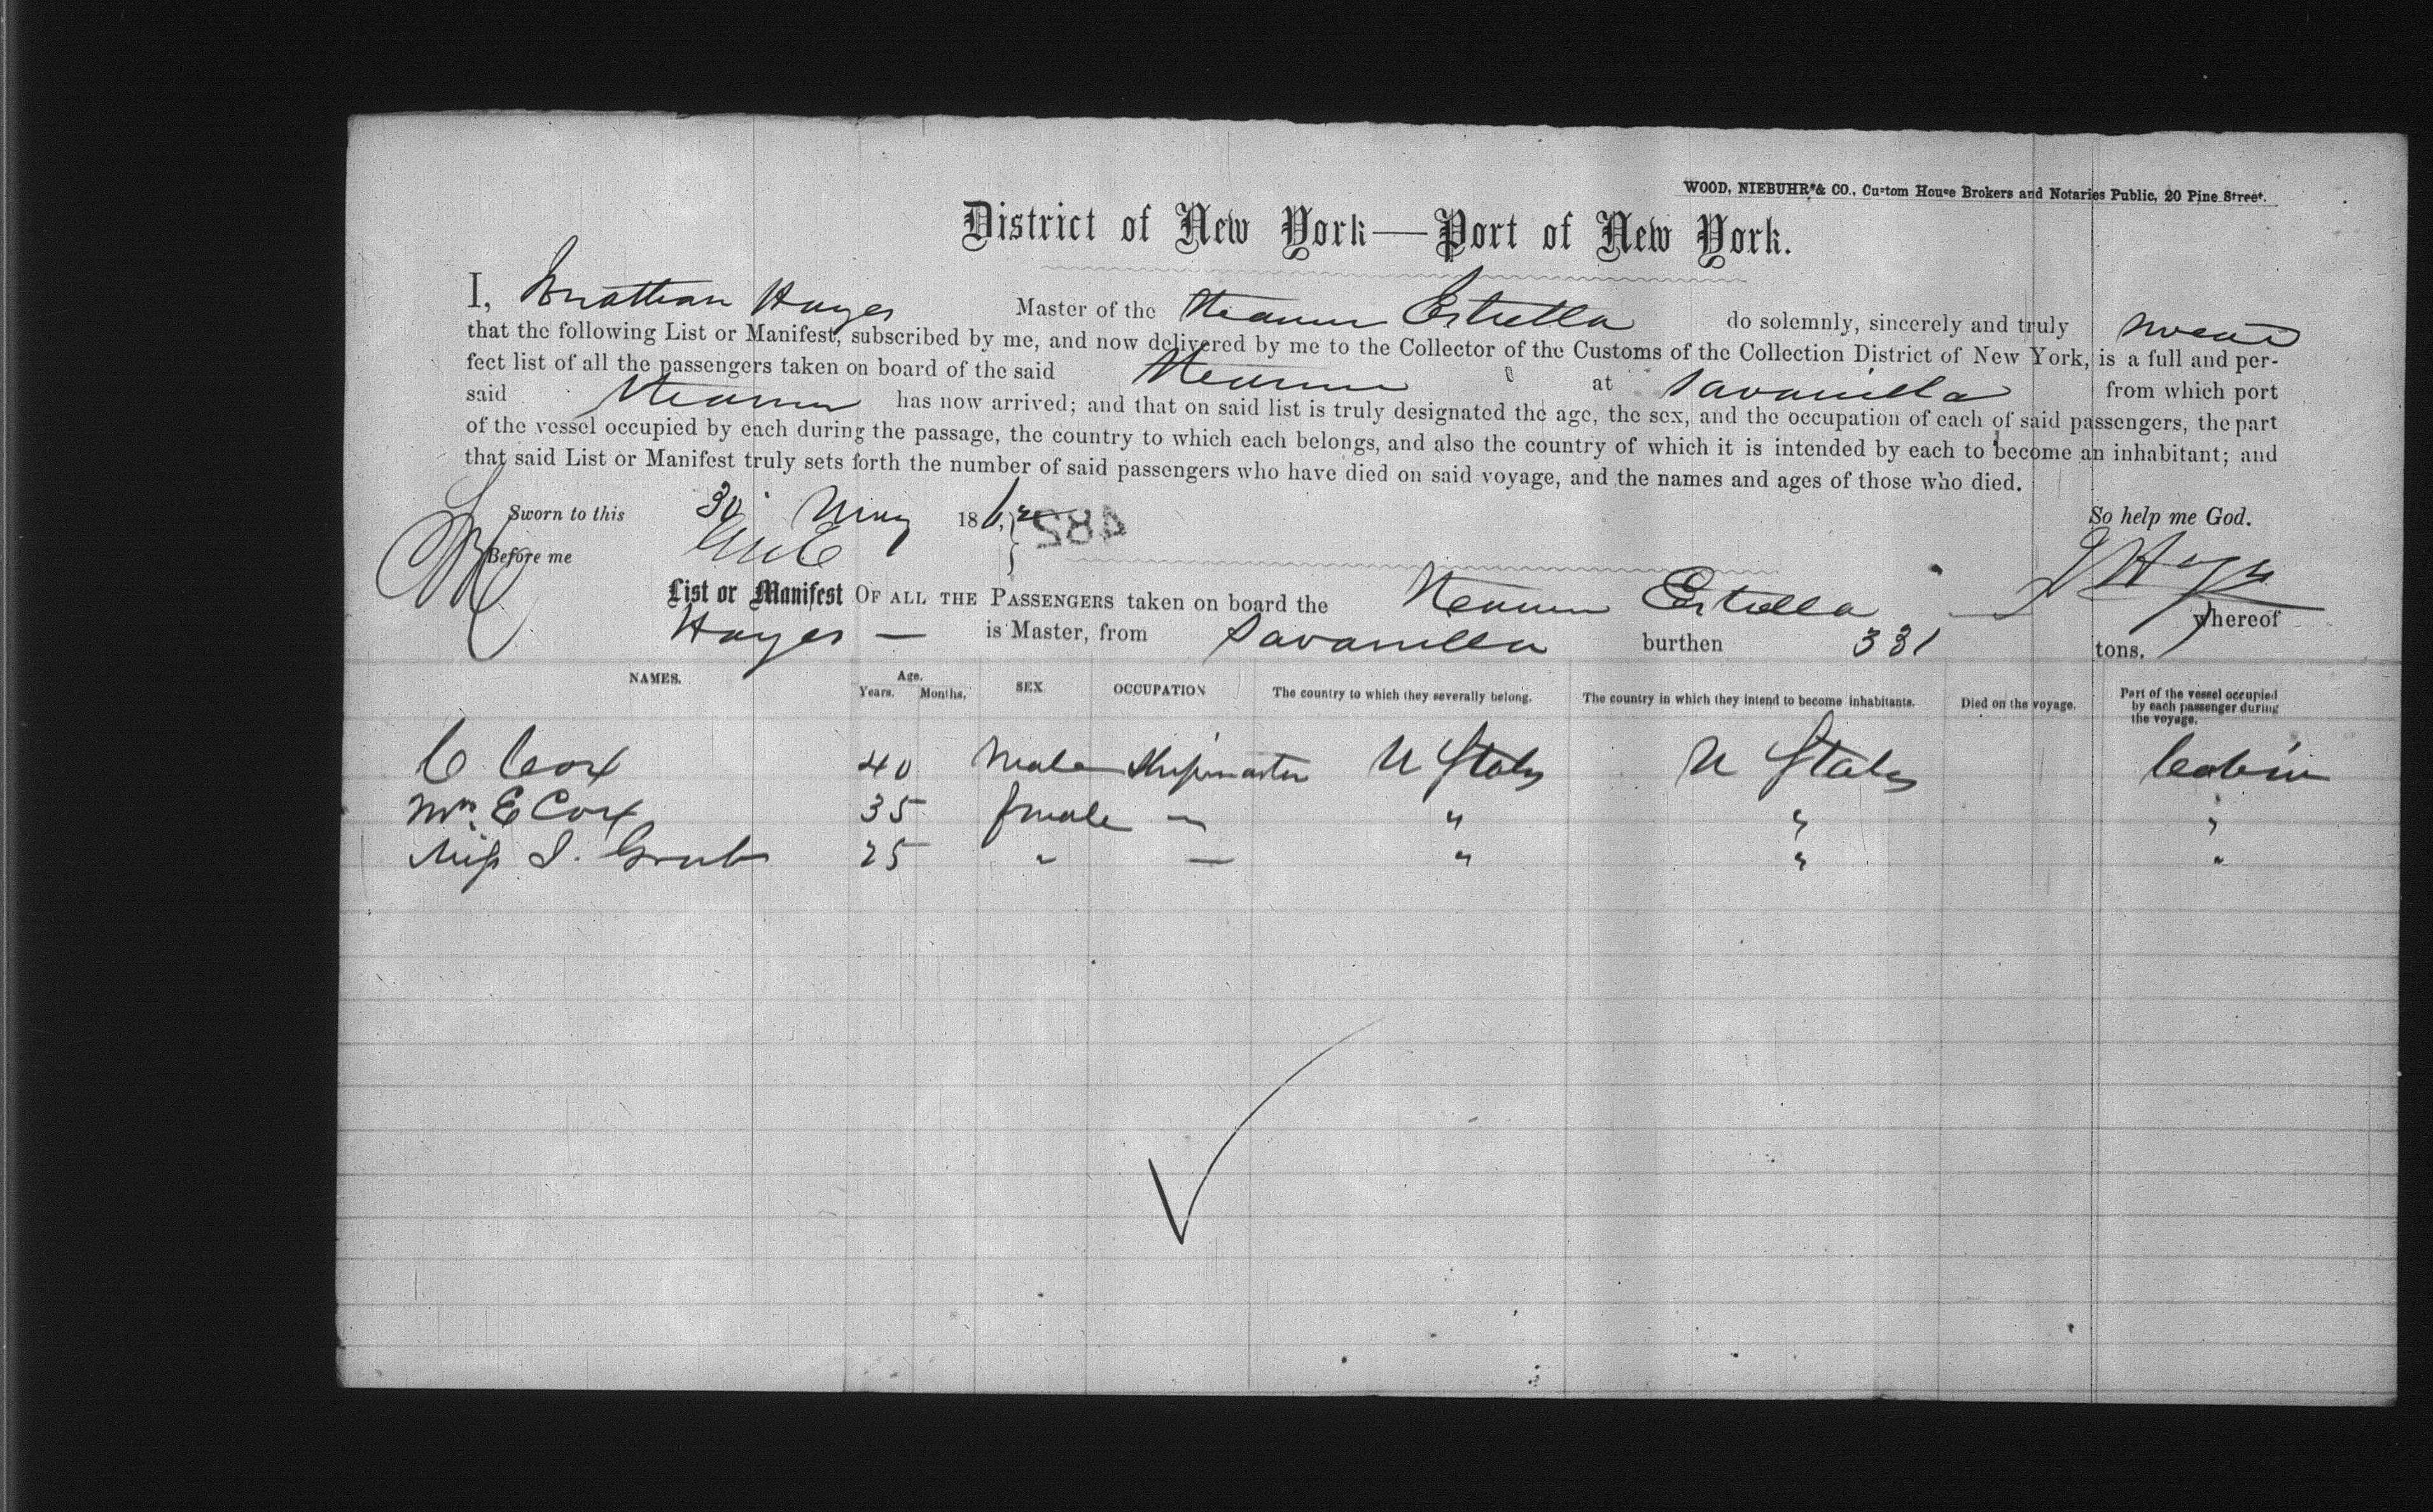 WOOD, NIEBUHR & CO., Custom House Brokers and Notaries Public, 20 Pine Street.
District of New York—Port of New York.
I, Jonathan Hayes Master of the Steamer Estrella do solemnly, sincerely and truly swear
that the following List or Manifest, subscribed by me, and now delivered by me to the Collector of the Customs of the Collection District of New York, is a full and per-
fect list of all the passengers taken on board of the said Steamer at Savanilla from which port
said Steamer has now arrived; and that on said list is truly designated the age, the sex, and the occupation of each of said passengers, the part
of the vessel occupied by each during the passage, the country to which each belongs, and also the country of which it is intended by each to become an inhabitant; and
that said List or Manifest truly sets forth the number of said passengers who have died on said voyage, and the names and ages of those who died.
Sworn to this 30 May 186 482 So help me God.
Before me J Hayes
List or Manifest OF ALL THE PASSENGERS taken on board the Steamer Estrella whereof
Hayes — is Master, from Savanilla burthen 331 tons.
NAMES. Age. Years. Months. SEX OCCUPATION The country to which they severally belong. The country in which they intend to become inhabitants. Died on the voyage. Part of the vessel occupied by each passenger during the voyage.
C Cox 40 Male Shipmaster U States U States Cabin
Mrs E Cox 35 female — " " "
Miss S. 25 " — " " "